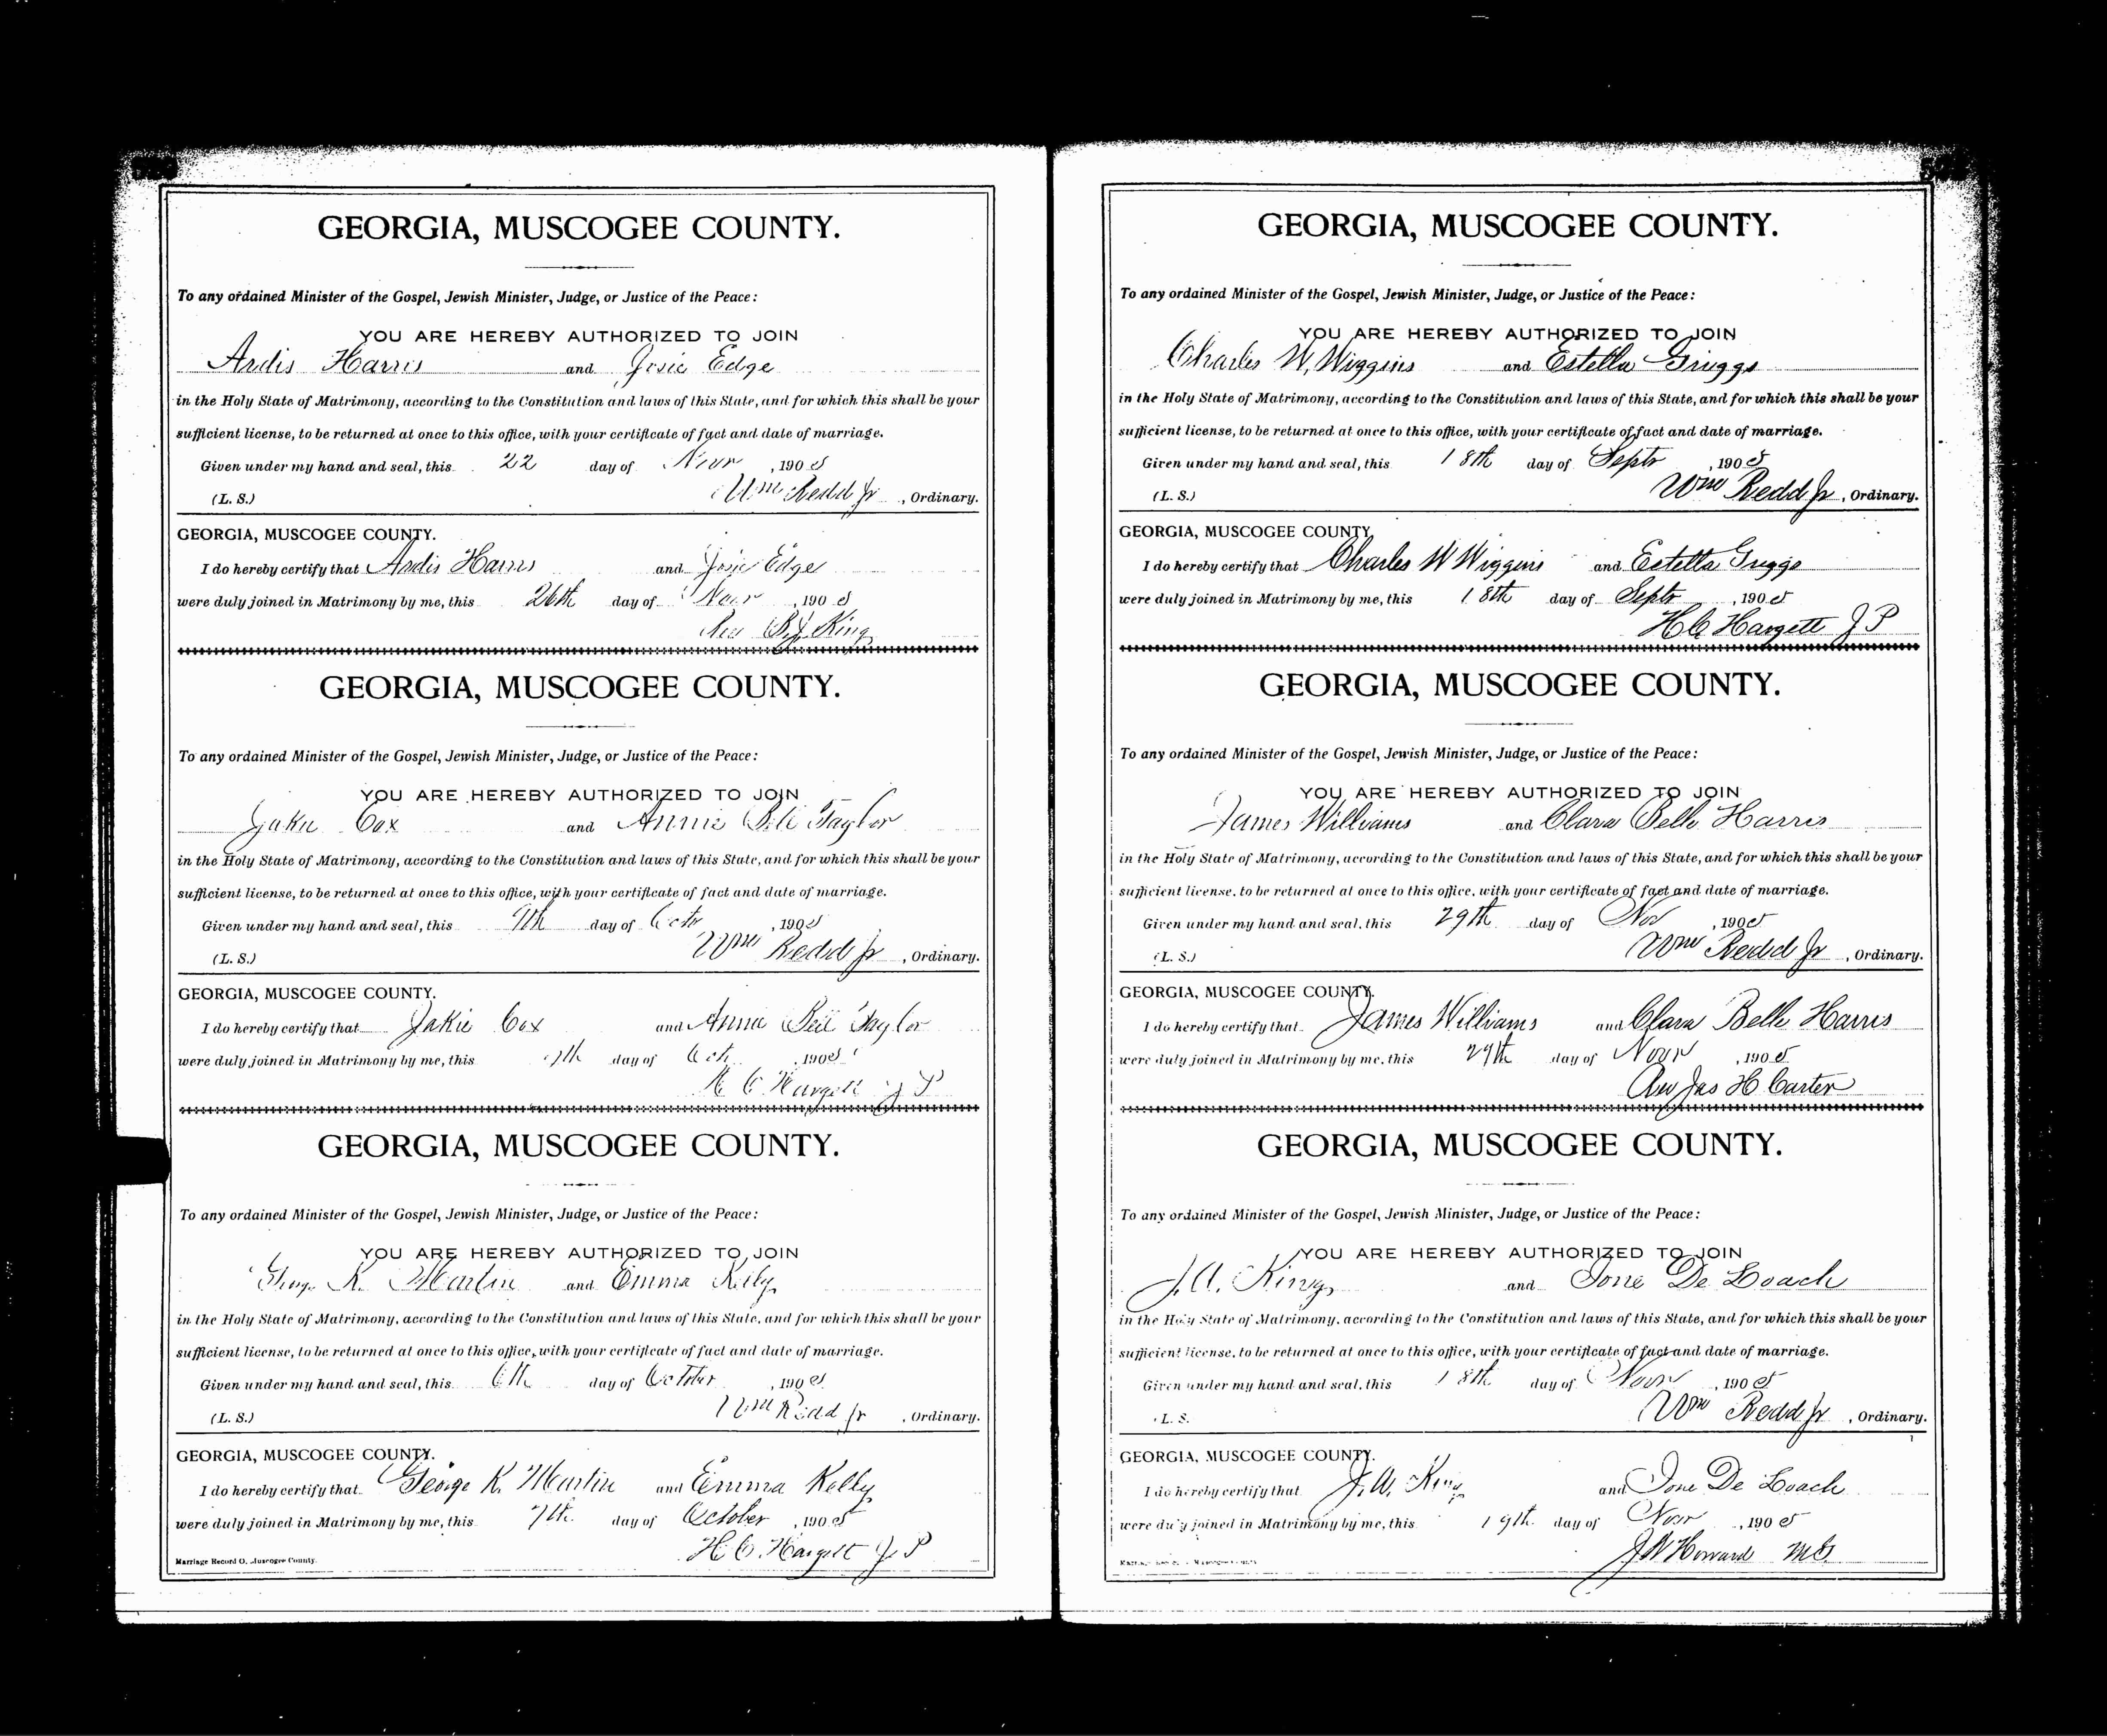 GEORGIA, MUSCOGEE COUNTY.
To any ordained Minister of the Gospel, Jewish Minister, Judge, or Justice of the Peace:
YOU ARE HEREBY AUTHORIZED TO JOIN
Ardis Harris and Josie Edge
in the Holy State of Matrimony, according to the Constitution and laws of this State, and for which this shall be your
sufficient license, to be returned at once to this office, with your certificate of fact and date of marriage.
Given under my hand and seal, this 22 day of Novr, 1905
(L. S.) Wm Redd Jr, Ordinary.
GEORGIA, MUSCOGEE COUNTY.
I do hereby certify that Ardis Harris and Josie Edge
were duly joined in Matrimony by me, this 26th day of Novr, 1905
Rev King
GEORGIA, MUSCOGEE COUNTY.
To any ordained Minister of the Gospel, Jewish Minister, Judge, or Justice of the Peace:
YOU ARE HEREBY AUTHORIZED TO JOIN
Cox and Annie Taylor
in the Holy State of Matrimony, according to the Constitution and laws of this State, and for which this shall be your
sufficient license, to be returned at once to this office, with your certificate of fact and date of marriage.
Given under my hand and seal, this 9th day of Octr, 1905
(L. S.) Wm Redd Jr, Ordinary.
GEORGIA, MUSCOGEE COUNTY.
I do hereby certify that Jakie Cox and Annie Taylor
were duly joined in Matrimony by me, this day of Oct, 1905
H C Hargett J P
GEORGIA, MUSCOGEE COUNTY.
To any ordained Minister of the Gospel, Jewish Minister, Judge, or Justice of the Peace:
YOU ARE HEREBY AUTHORIZED TO JOIN
George K. Martin and Emma Kelly
in the Holy State of Matrimony, according to the Constitution and laws of this State, and for which this shall be your
sufficient license, to be returned at once to this office, with your certificate of fact and date of marriage.
Given under my hand and seal, this 6th day of October, 1905
(L. S.) Wm Redd Jr, Ordinary.
GEORGIA, MUSCOGEE COUNTY.
I do hereby certify that George K. Martin and Emma Kelly
were duly joined in Matrimony by me, this 7th day of October, 1905
H C. Hargett J P
Marriage Record O, Muscogee County.
GEORGIA, MUSCOGEE COUNTY.
To any ordained Minister of the Gospel, Jewish Minister, Judge, or Justice of the Peace:
YOU ARE HEREBY AUTHORIZED TO JOIN
Charles W. Wiggins and Estella Griggs
in the Holy State of Matrimony, according to the Constitution and laws of this State, and for which this shall be your
sufficient license, to be returned at once to this office, with your certificate of fact and date of marriage.
Given under my hand and seal, this 18th day of Septr, 1905
(L. S.) Wm Redd Jr, Ordinary.
GEORGIA, MUSCOGEE COUNTY.
I do hereby certify that Charles W Wiggins and Estella Griggs
were duly joined in Matrimony by me, this 18th day of Septr, 1905
H C Hargett J P
GEORGIA, MUSCOGEE COUNTY.
To any ordained Minister of the Gospel, Jewish Minister, Judge, or Justice of the Peace:
YOU ARE HEREBY AUTHORIZED TO JOIN
James Williams and Clara Belle Harris
in the Holy State of Matrimony, according to the Constitution and laws of this State, and for which this shall be your
sufficient license, to be returned at once to this office, with your certificate of fact and date of marriage.
Given under my hand and seal, this 29th day of Nov, 1905
(L. S.) Wm Redd Jr, Ordinary.
GEORGIA, MUSCOGEE COUNTY.
I do hereby certify that James Williams and Clara Belle Harris
were duly joined in Matrimony by me, this 29th day of Novr, 1905
Rev Jas H Carter
GEORGIA, MUSCOGEE COUNTY.
To any ordained Minister of the Gospel, Jewish Minister, Judge, or Justice of the Peace:
YOU ARE HEREBY AUTHORIZED TO JOIN
J. A. King and Ione De Loach
in the Holy State of Matrimony, according to the Constitution and laws of this State, and for which this shall be your
sufficient license, to be returned at once to this office, with your certificate of fact and date of marriage.
Given under my hand and seal, this 18th day of Novr, 1905
L. S. Wm Redd Jr, Ordinary.
GEORGIA, MUSCOGEE COUNTY.
I do hereby certify that J. A. King and Ione De Loach
were duly joined in Matrimony by me, this 19th day of Novr, 1905
J W Howard M G